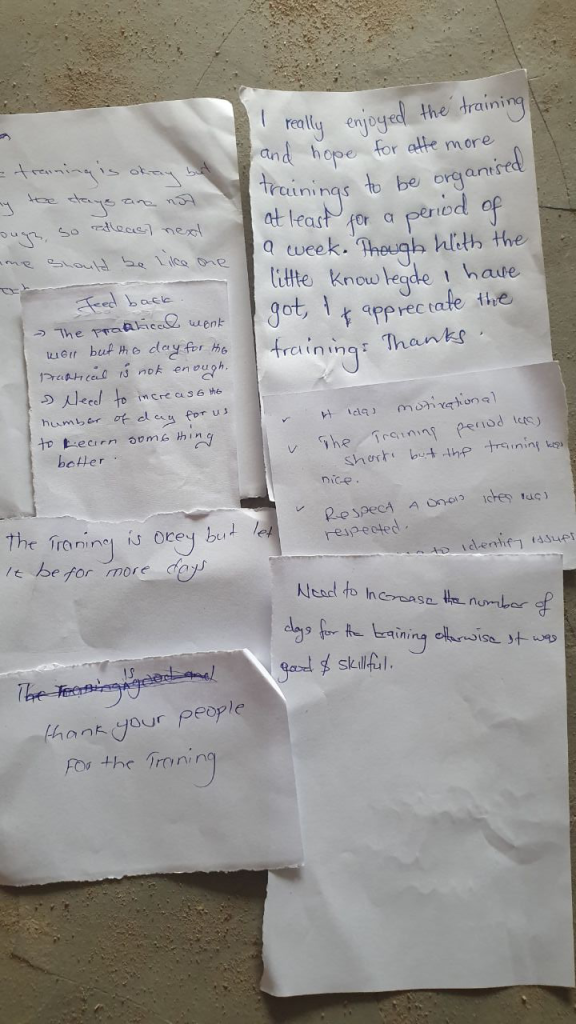 training is okay but
the days are not
so atleast next
should be like one
Feed back.
→ The practical went
well but the day for the
practical is not enough.
→ Need to increase the
number of day for us
to Learn something
better.
I really enjoyed the training
and hope for more
trainings to be organised
at least for a period of
a week. Though With the
little knowlegde I have
got, I appreciate the
training. Thanks.
✓ It was motivational
✓ The Training period was
short but the training was
nice.
✓ Respect idea was
respected.
to identify issues
The Training is okey but let
it be for more days
The Training is good and
thank your people
For the Training
Need to Increase the number of
days for the training otherwise it was
good & skillful.